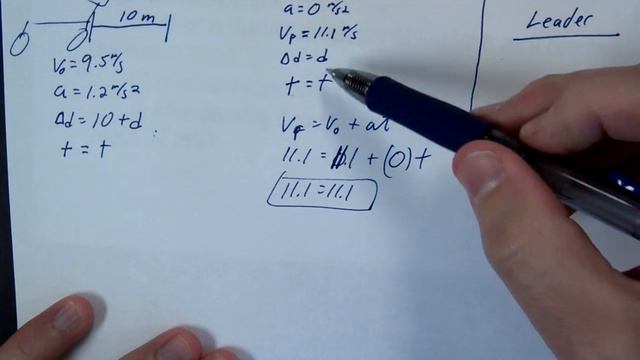 10 m
V₀ = 9.5 m/s
a = 1.2 m/s²
Δd = 10 + d
t = t
a = 0 m/s²
V_f = 11.1 m/s
Δd = d
t = t
V_f = V₀ + at
11.1 = 11.1 + (0) t
11.1 = 11.1
Leader